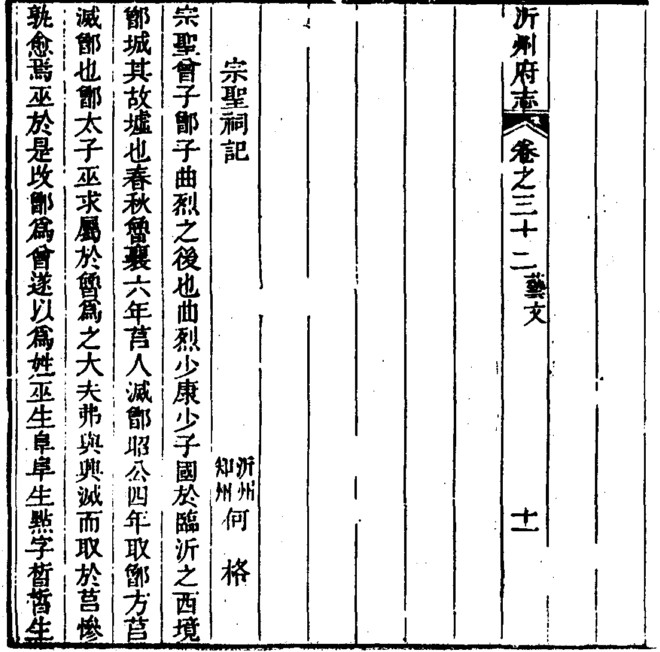 沂州府志 卷之三十二 藝文 十一
宗聖祠記 沂州知州 何格
宗聖曾子鄫子曲烈之後也曲烈少康少子國於臨沂之西境
鄫城其故墟也春秋魯襄六年莒人滅鄫昭公四年取鄫方莒
滅鄫也鄫太子巫求屬於魯爲之大夫弗與興滅而取於莒慘
孰愈焉巫於是攺鄫爲曾遂以爲姓巫生阜阜生㸃字晳晳生